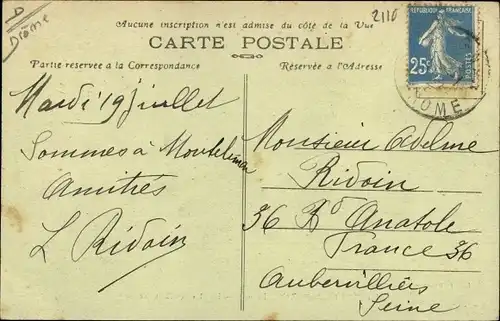 D
Drôme
2110
Aucune inscription n'est admise du côté de la Vue
CARTE POSTALE
Partie reservée a la Correspondance
Réservée a l'Adresse
REPUBLIQUE FRANÇAISE
25c
POSTES
DROME
Mardi 19 juillet
Sommes à Montélimar
Amitiés
L Ridoin
Monsieur Adelme
Ridoin
36 Bd Anatole
France 36
Aubervilliers
Seine